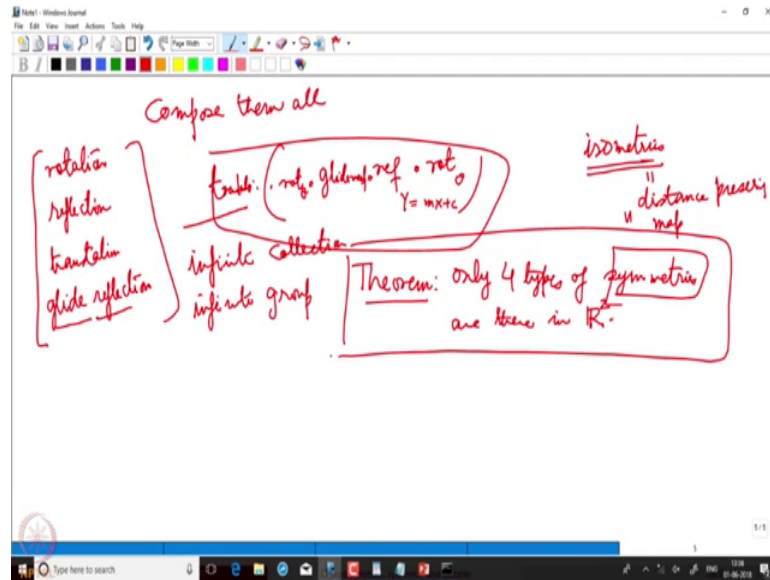 Note1 - Windows Journal
File Edit View Insert Actions Tools Help
Page Width
B I
Compose them all
rotation
reflection
translation
glide reflection
rot . glideref . ref . rot
Y = mx+c
infinite collection
infinite group
isometries
"
distance
"
map
Theorem: only 4 types of symmetries
are there in ℝ².
5/5
5
Type here to search
ENG
13:38
01-06-2018